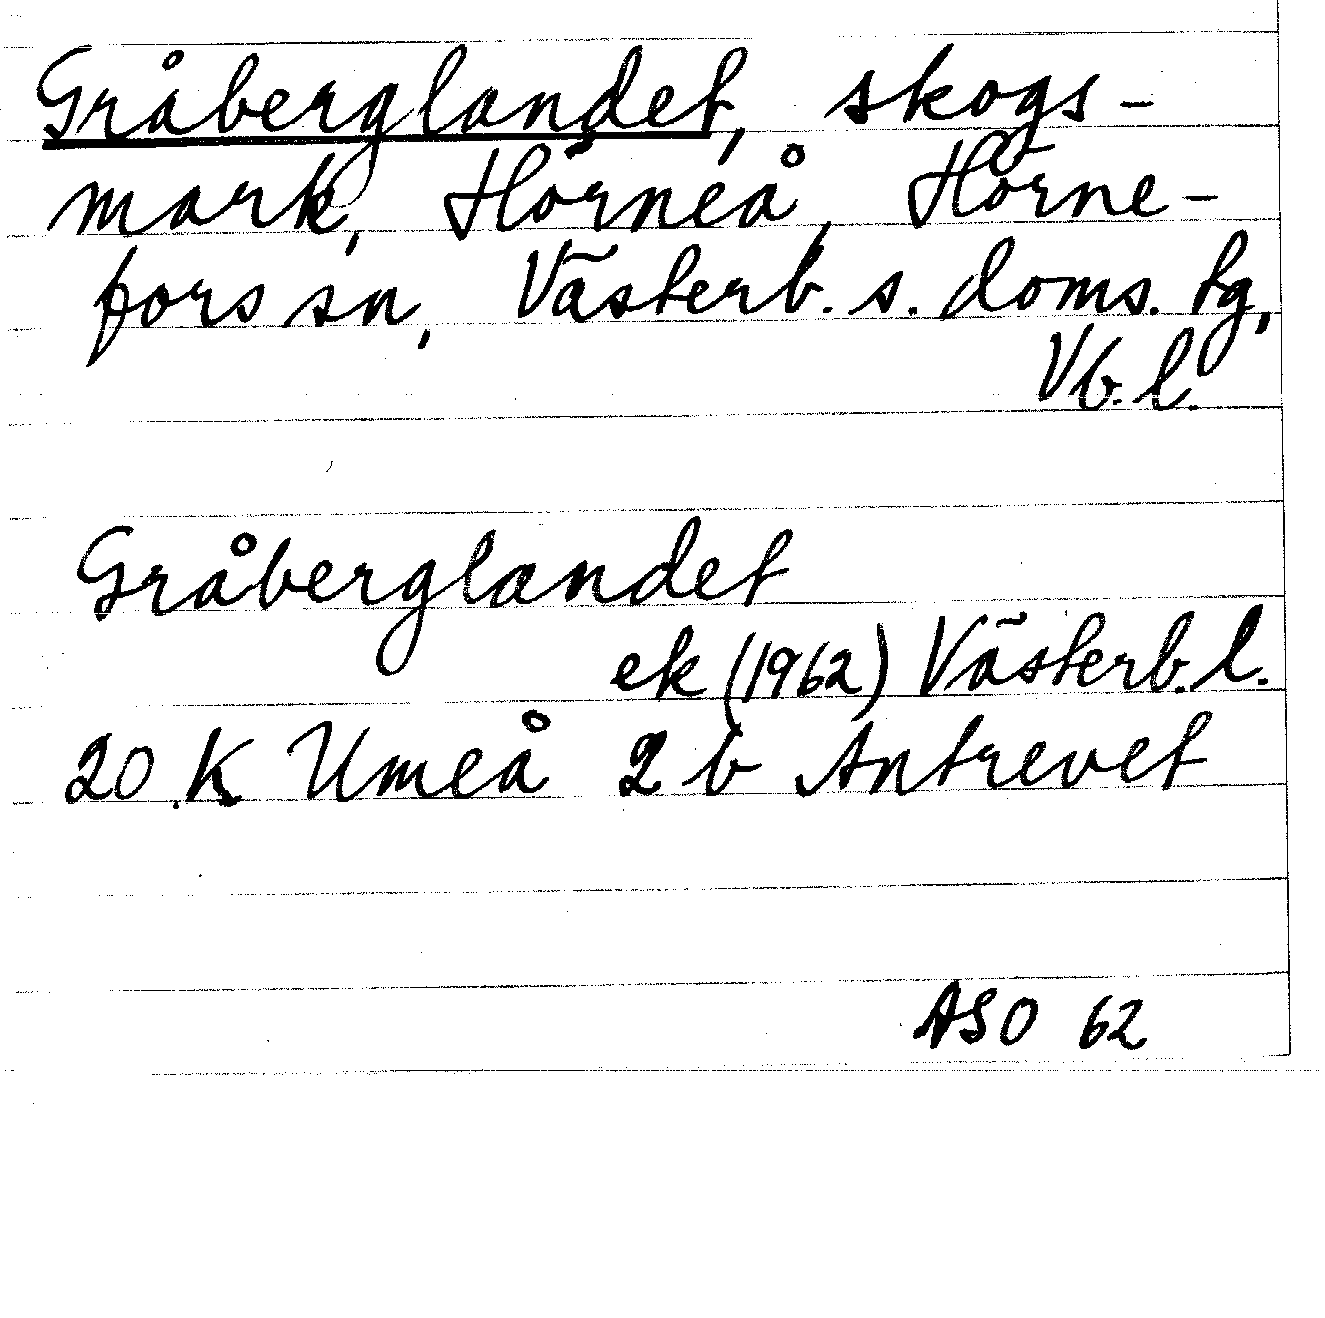 Gråberglandet, skogs-
mark, Hörneå, Hörne-
fors sn, Västerb. s. doms. tg,
Vb. l.
Gråberglandet
ek (1962) Västerb. l.
20 K Umeå 2 b Antrevet
ASO 62